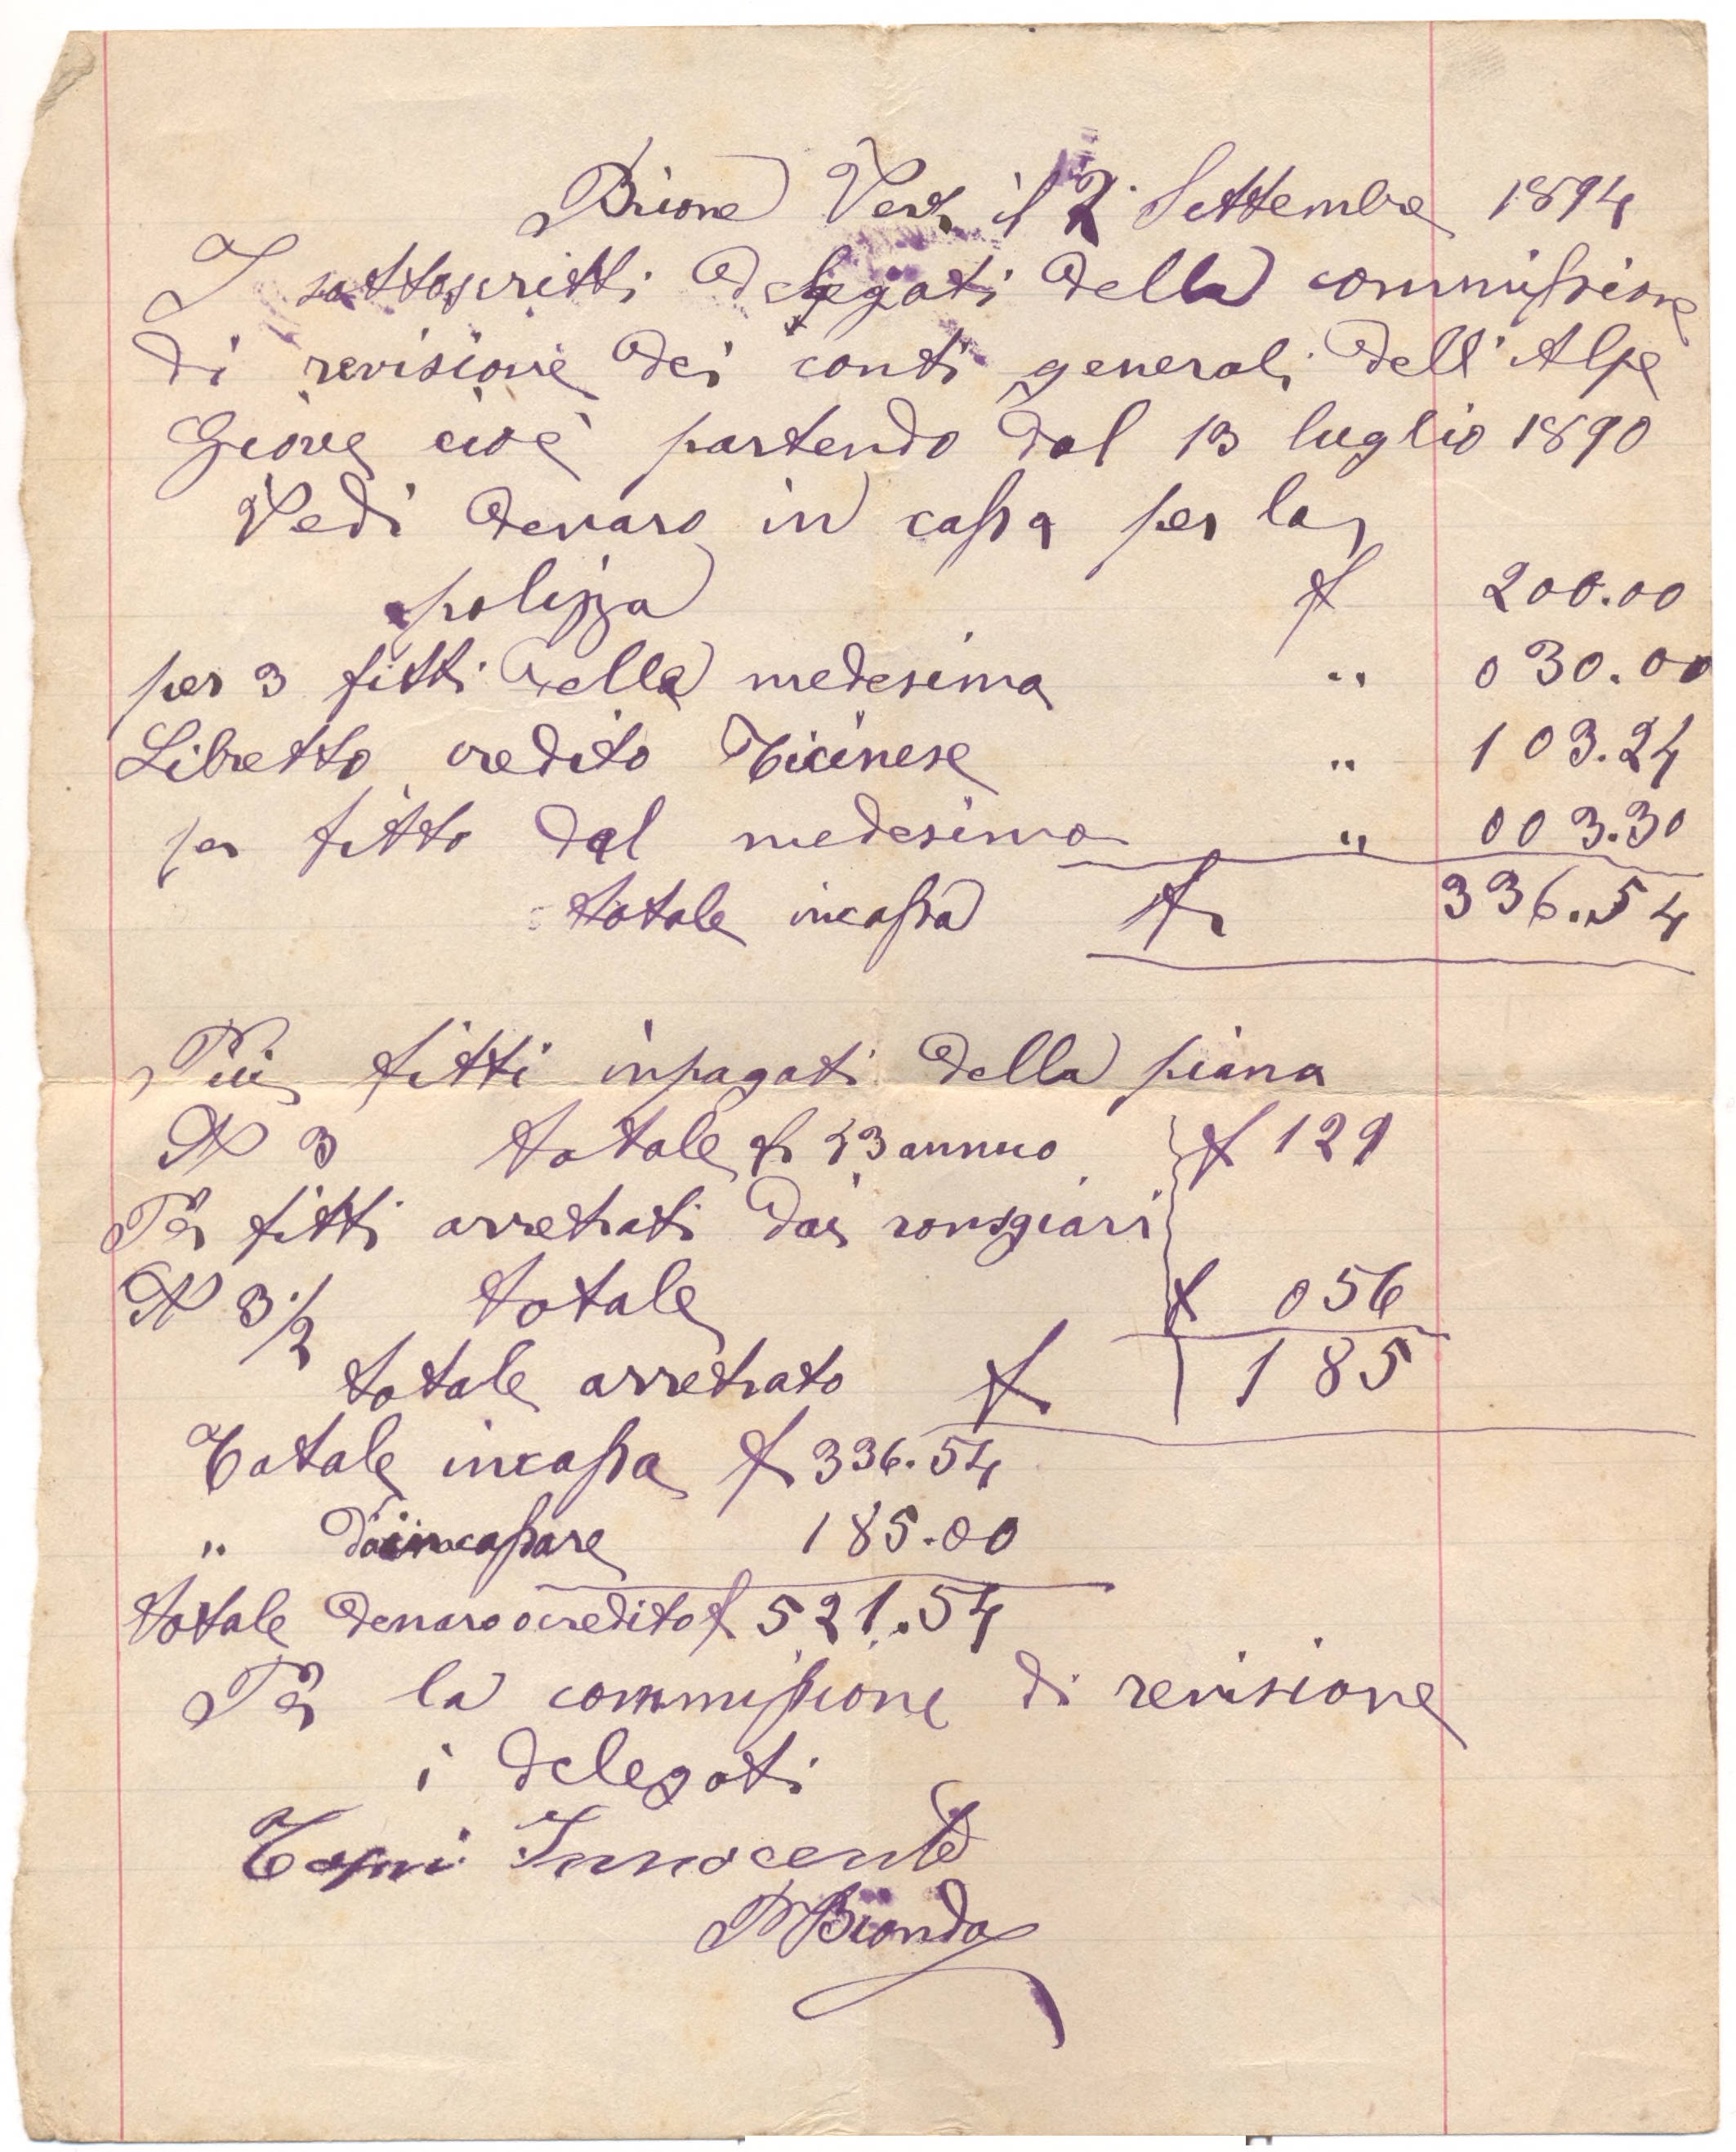 Brione Verz. il 2 Settembre 1894
I sottoscritti delegati della commissione
di revisione dei conti generali dell'Alpe
Giove cioè partendo dal 13 luglio 1890
Vedi denaro in cassa per la
polizza f 200.00
per 3 fitti della medesima " 030.00
Libretto credito Ticinese " 103.24
per fitto dal medesimo " 003.30
totale incassa fr 336.54
Più fitti inpagati della piana
N 3 totale fr 43 annuo f 129
Per fitti arretrati dai
N 3 1/2 totale f 056
totale arretrato fr 185
Totale incassa fr 336.54
" da incassare 185.00
totale denaro o credito f 521.54
Per la commissione di revisione
i delegati
Innocente
Bionda